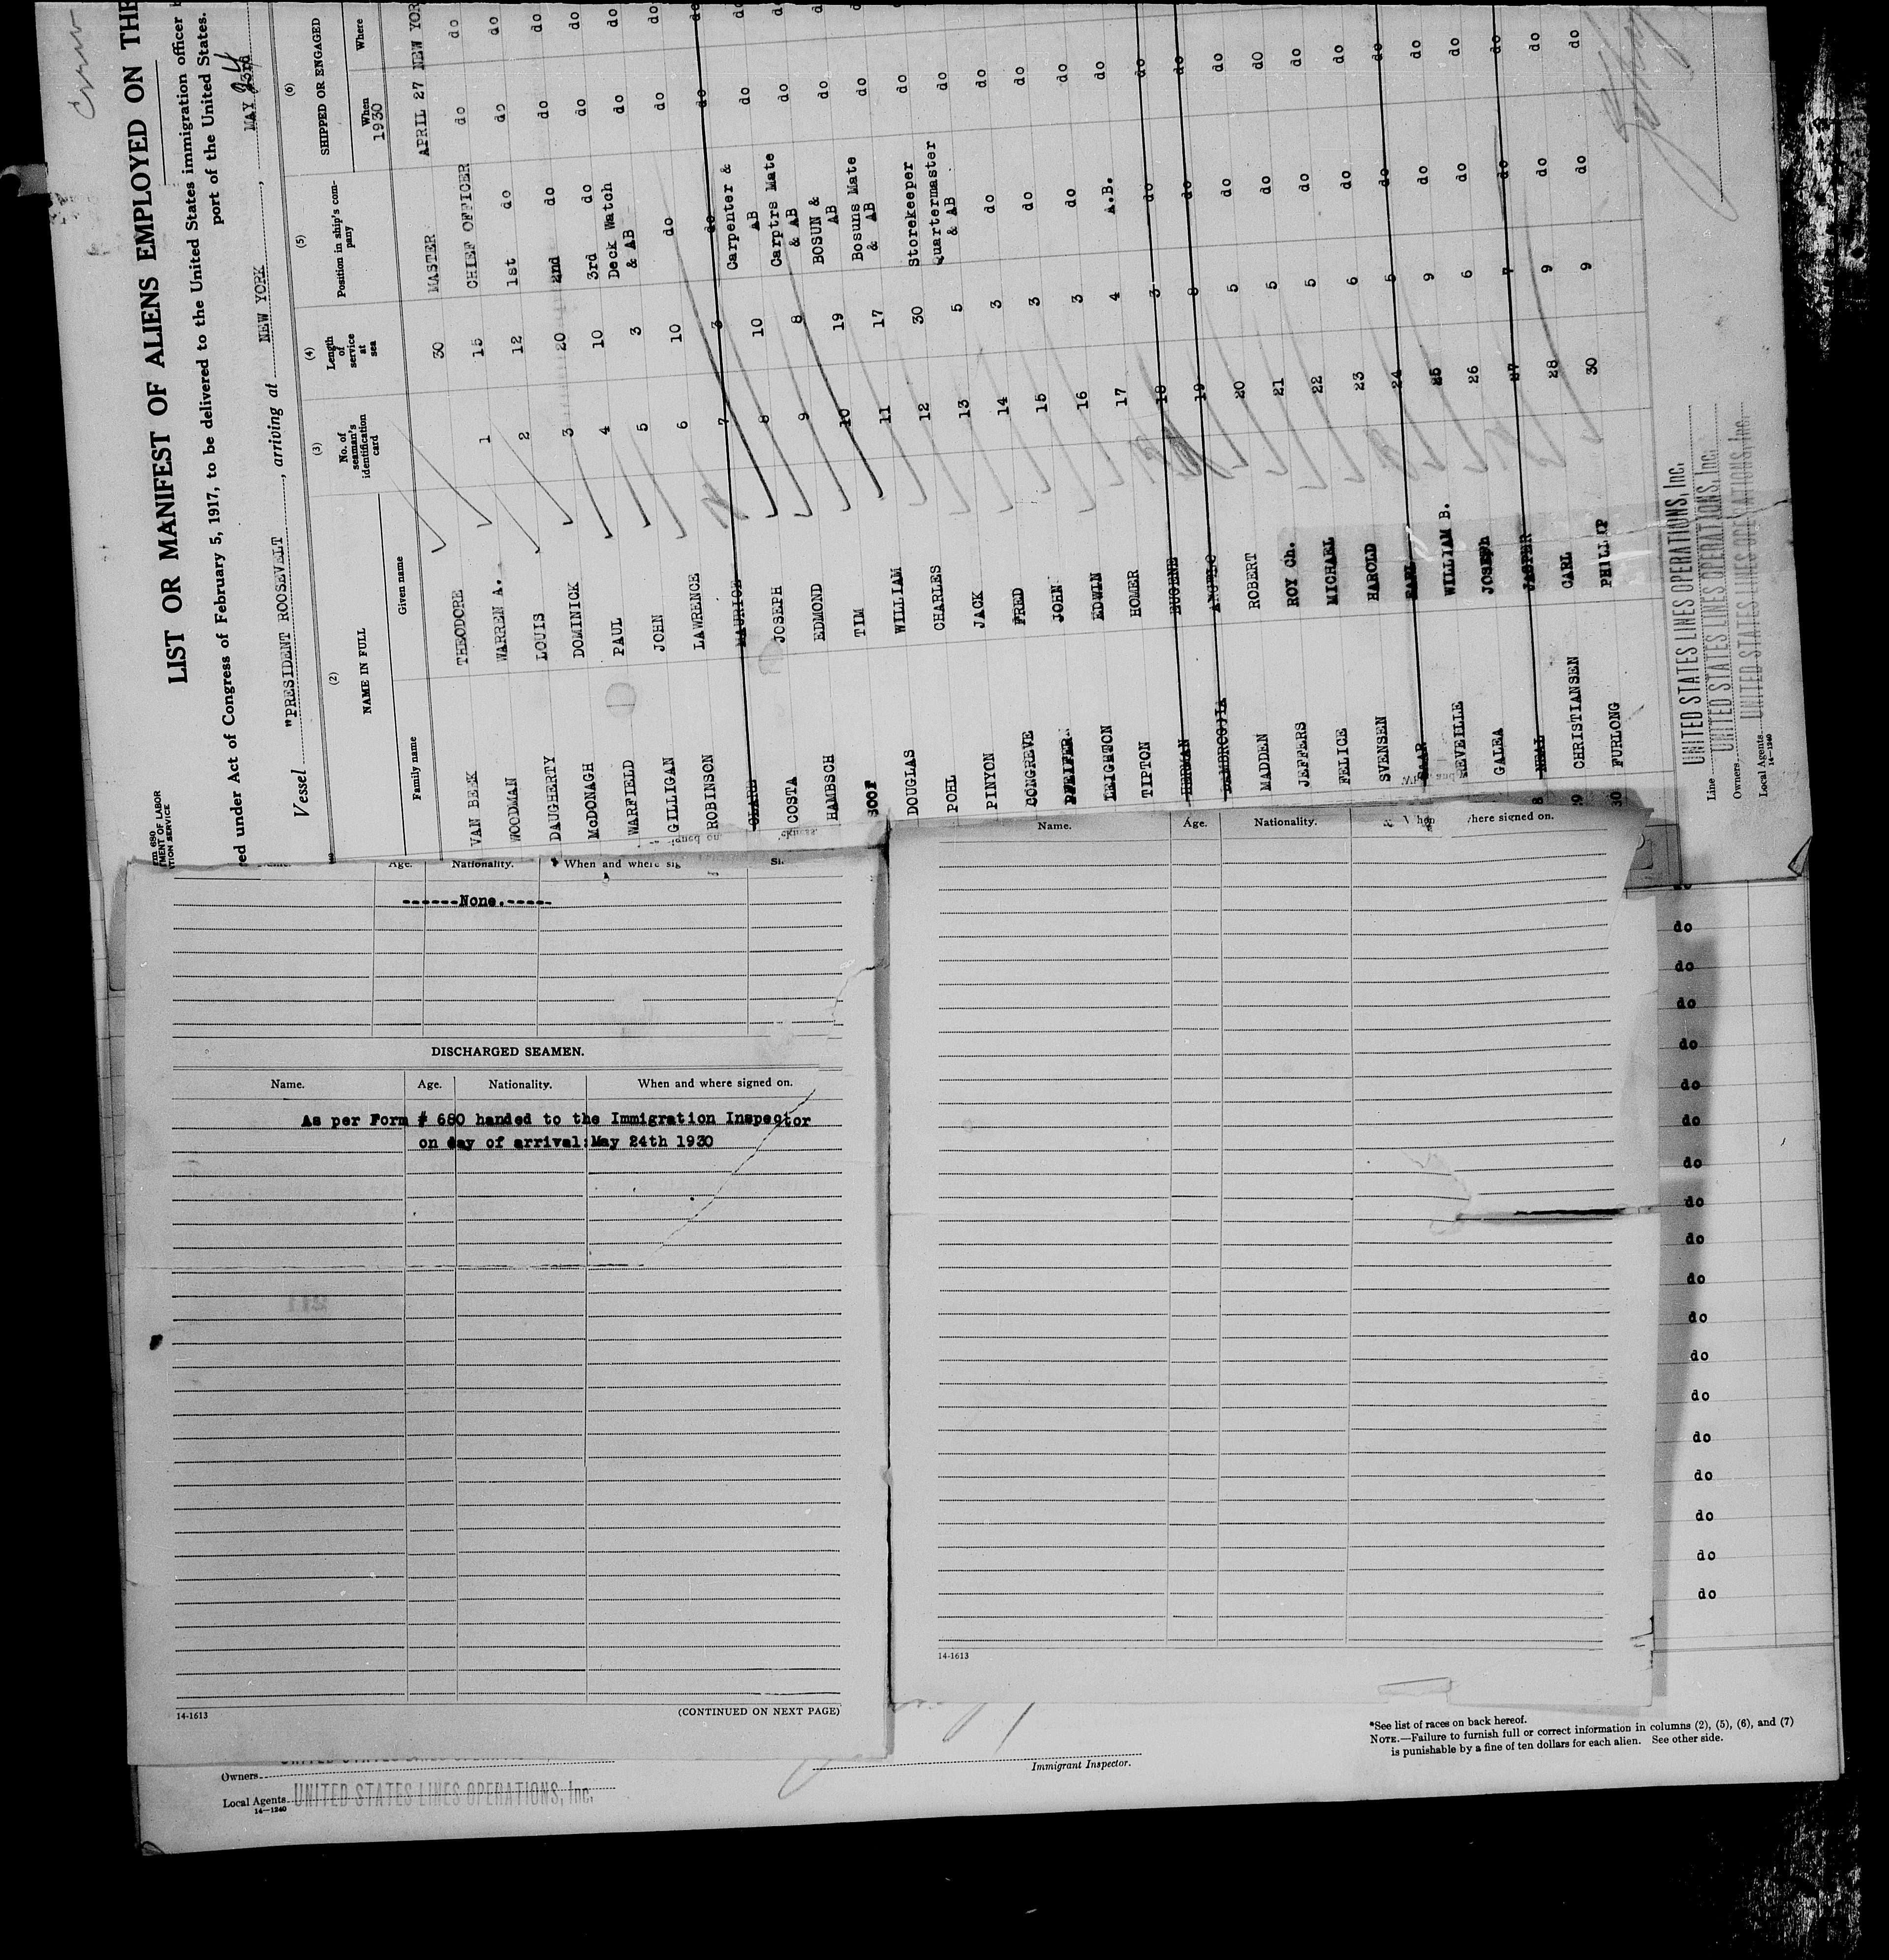 Crew
LIST OR MANIFEST OF ALIENS EMPLOYED ON THE
red under Act of Congress of February 5, 1917, to be delivered to the United States immigration officer
port of the United States.
Vessel "PRESIDENT ROOSEVELT, arriving at NEW YORK, MAY 23rd 24
rm 680
TMENT OF LABOR
TION SERVICE
(2) (3) (4) (5) (6)
NAME IN FULL No. of seaman's identification card Length of service at sea Position in ship's company SHIPPED OR ENGAGED
Family name Given name When Where
1930
30 MASTER APRIL 27 NEW YOR
VAN BEEK THEODORE 1 15 CHIEF OFFICER do do
WOODMAN WARREN A. 2 12 1st do do do
DAUGHERTY LOUIS 3 20 2nd do do do
McDONAGH DOMINICK 4 10 3rd do do do
WARFIELD PAUL 5 3 Deck Watch & AB do do
GILLIGAN JOHN 6 10 do do do
ROBINSON LAWRENCE 7 3 do do do
CLARE MAURICE 8 10 Carpenter & AB do do
COSTA JOSEPH 9 8 Carptrs Mate & AB do do
HAMBSCH EDMOND 10 19 BOSUN & AB do d
TIM 11 17 Bosuns Mate & AB do do
DOUGLAS WILLIAM 12 30 Storekeeper do
POHL CHARLES 13 5 Quartermaster & AB do do
PINYON JACK 14 3 do do do
CONGREVE FRED 15 3 do do do
PFEIFER JOHN 16 3 do do do
LEIGHTON EDWIN 17 4 A.B. do do
TIPTON HOMER 18 3 do do do
HERMAN EUGENE 19 8 do do do
DAMBROSJIA ANGELO 20 5 do do do
MADDEN ROBERT 21 5 do do do
JEFFERS ROY Ch. 22 5 do do do
FELICE MICHAEL 23 6 do do do
SVENSEN HAROLD 24 5 do do do
SAAR EARL 25 9 do do do
REVEILLE WILLIAM B. 26 6 do do do
GALEA JOSEPh 27 7 do do do
NEAL JASPER 28 9 do do do
CHRISTIANSEN CARL 30 9 do do do
FURLONG PHILLIP
Line UNITED STATES LINES OPERATIONS, Inc.
Owners UNITED STATES LINES OPERATIONS, Inc.
Local Agents UNITED STATES LINES OPERATIONS, Inc.
14-1240
Age. Nationality. When and where sig
------None.-----
DISCHARGED SEAMEN.
Name. Age. Nationality. When and where signed on.
As per Form # 680 handed to the Immigration Inspector
on day of arrival:May 24th 1930
14-1613 (CONTINUED ON NEXT PAGE)
Name. Age. Nationality. When where signed on.
14-1613
do
do
do
do
do
do
do
do
do
do
do
do
do
do
do
do
do
do
*See list of races on back hereof.
NOTE.—Failure to furnish full or correct information in columns (2), (5), (6), and (7)
is punishable by a fine of ten dollars for each alien. See other side.
Immigrant Inspector.
Owners
Local Agents UNITED STATES LINES OPERATIONS, Inc.
14-1240